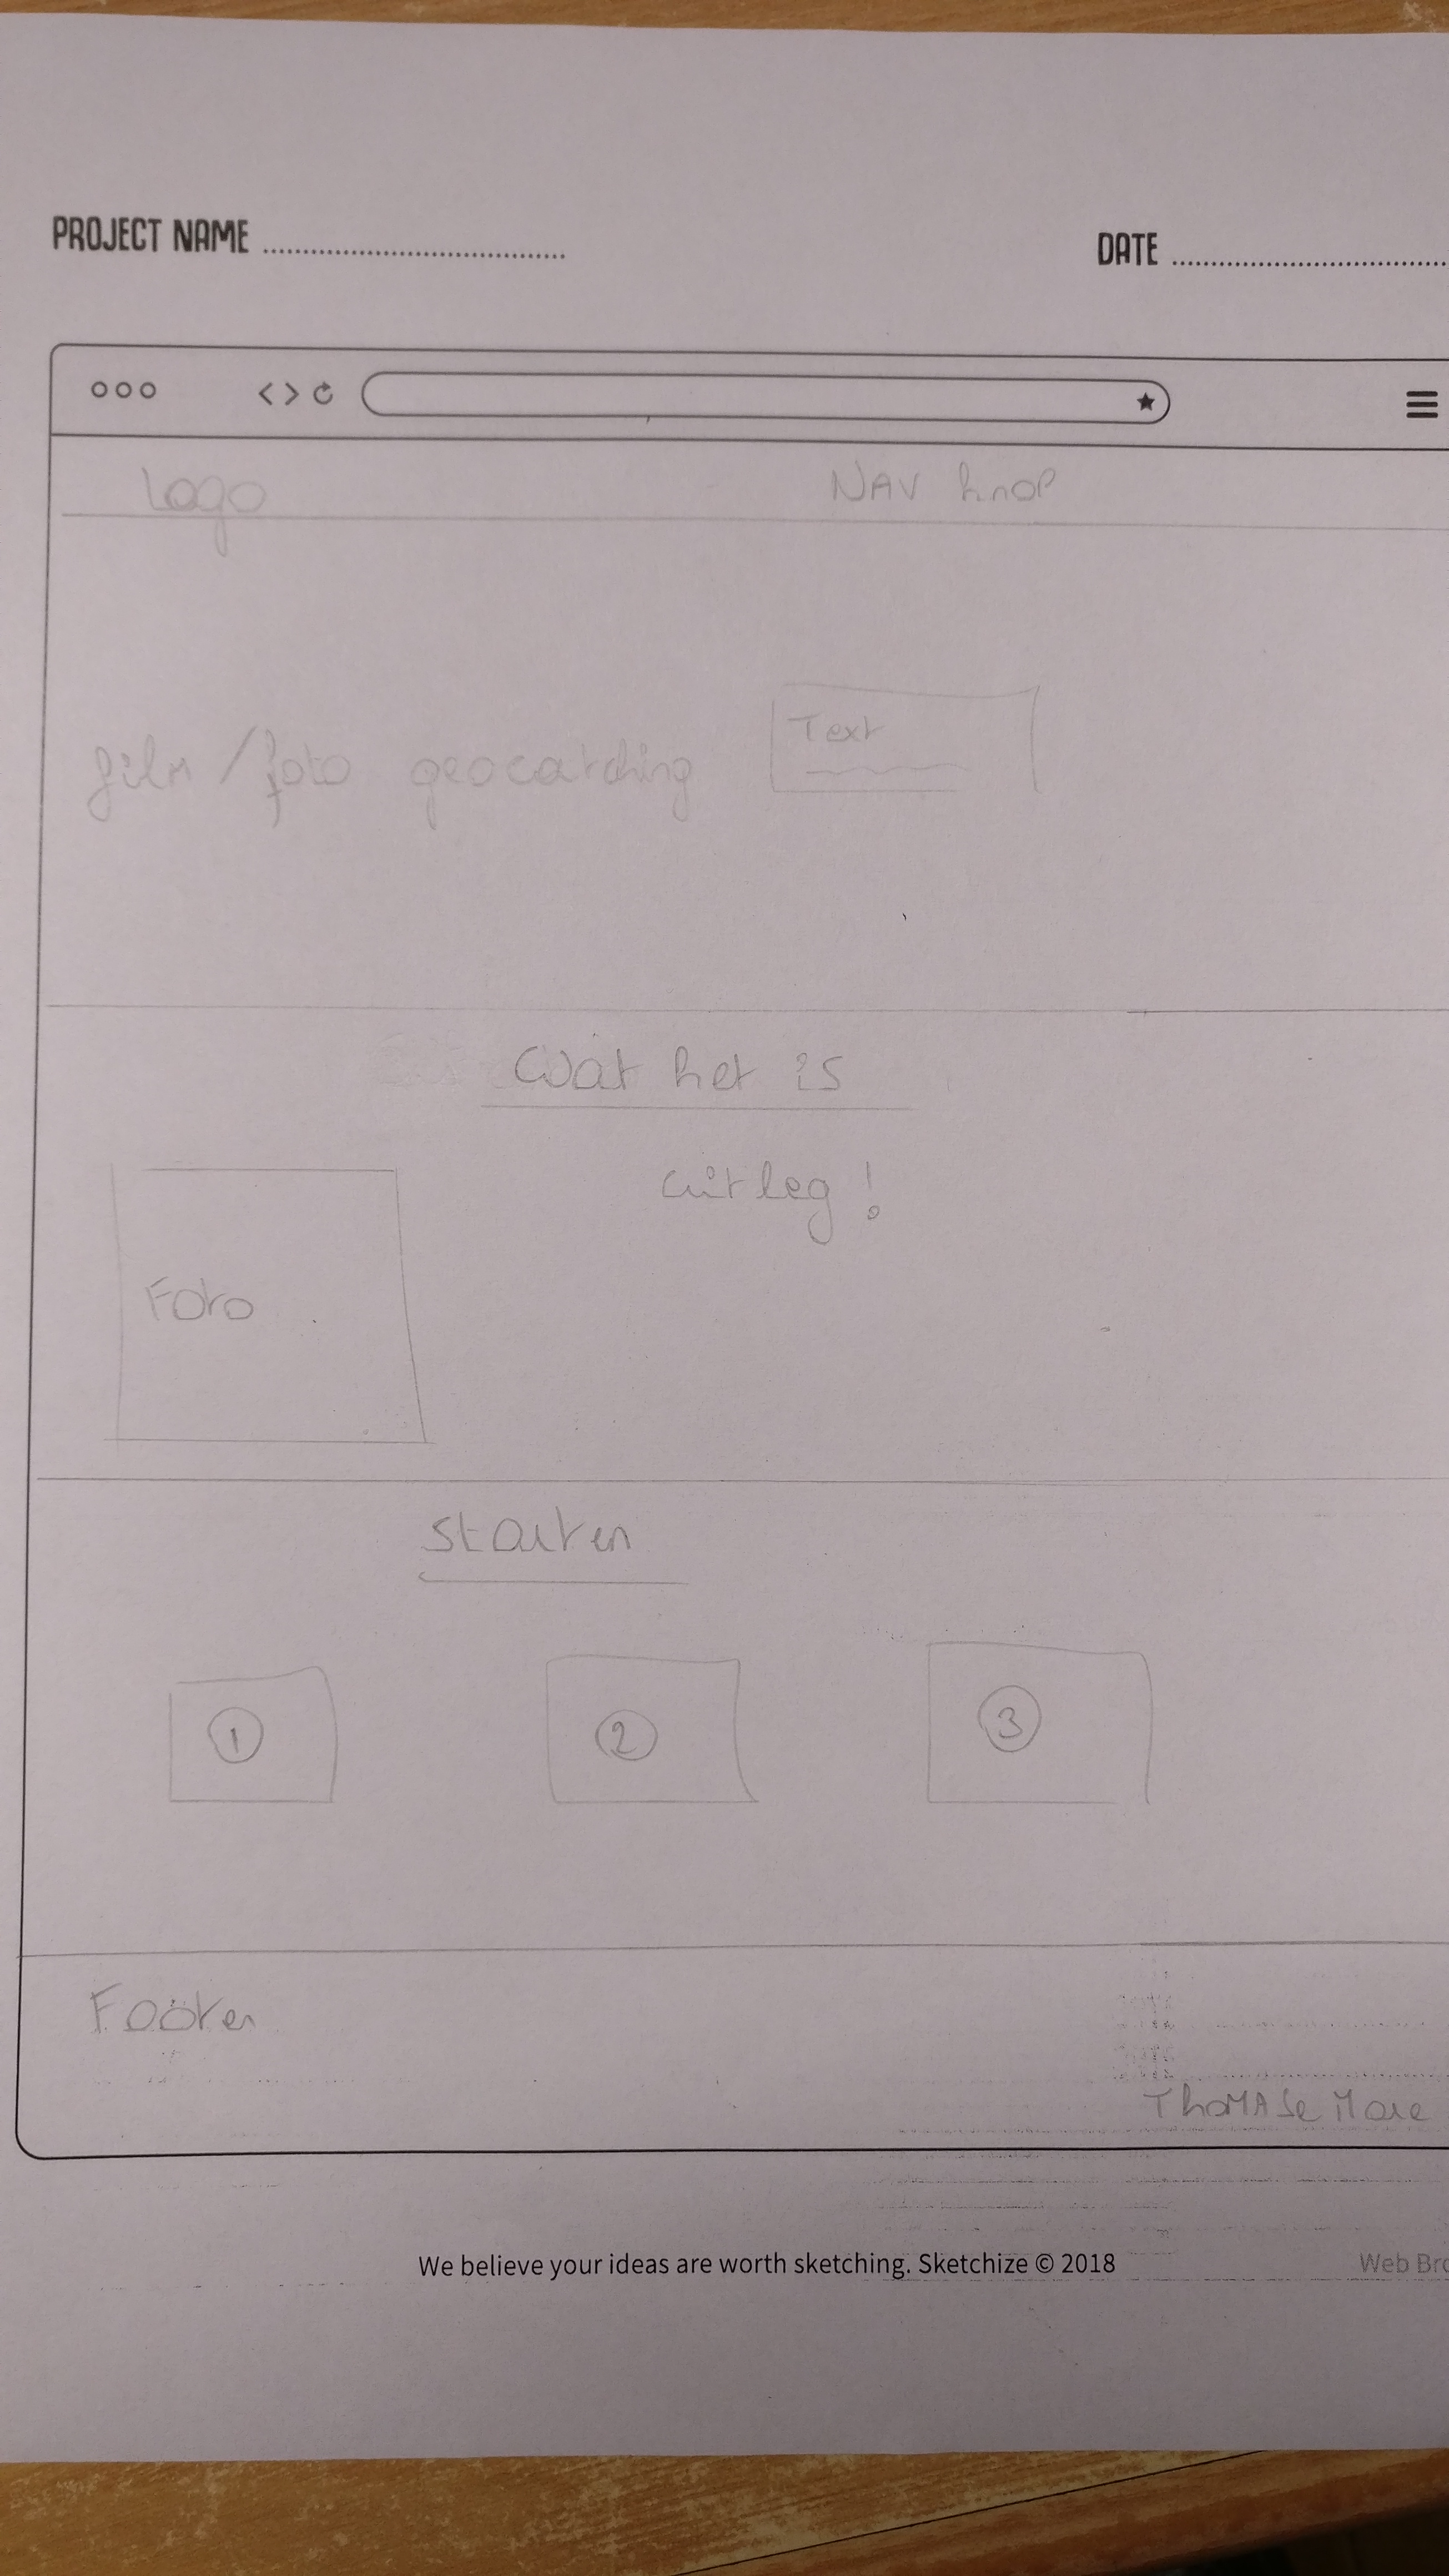 PROJECT NAME
DATE
Logo
NAV knop
film/foto geocatching
Text
Wat het is
uitleg!
Foto
starten
1
2
3
Footer
We believe your ideas are worth sketching. Sketchize © 2018
Web Bro